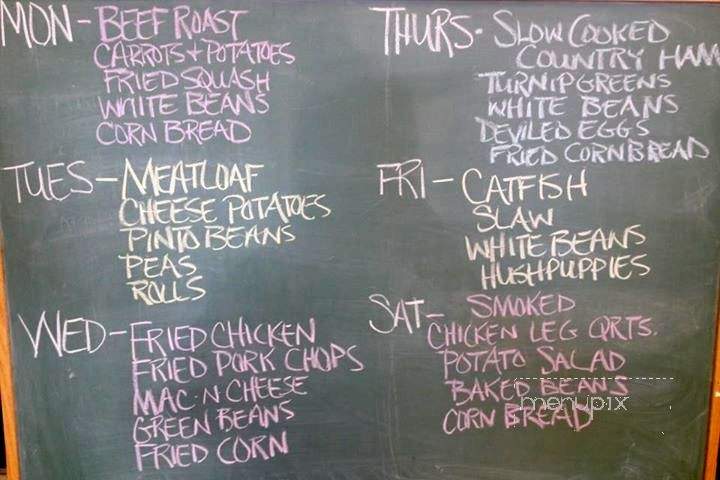 MON - BEEF ROAST
CARROTS + POTATOES
FRIED SQUASH
WHITE BEANS
CORN BREAD
TUES - MEATLOAF
CHEESE POTATOES
PINTO BEANS
PEAS
ROLLS
WED - FRIED CHICKEN
FRIED PORK CHOPS
MAC·N CHEESE
GREEN BEANS
FRIED CORN
THURS - SLOW COOKED
COUNTRY HAM
TURNIP GREENS
WHITE BEANS
DEVILED EGGS
FRIED CORNBREAD
FRI - CATFISH
SLAW
WHITE BEANS
HUSHPUPPIES
SAT - SMOKED
CHICKEN LEG QRTS.
POTATO SALAD
BAKED BEANS
CORN BREAD
menupix